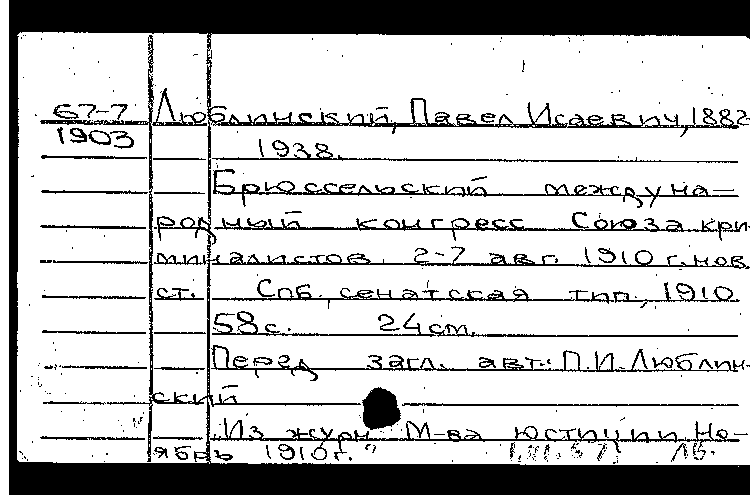 67-7 Люблинский, Павел Исаевич, 1882-
1903 1938.
Брюссельский междуна-
родный конгресс Союза кри
миналистов. 2-7 авг. 1910 г. нов.
ст. Спб, сенатская тип., 1910.
58 с. 24 cm.
Перед загл. авт.: П.И. Люблин-
ский
„Из журн. М-ва юстиции Но-
ябрь 1910г."